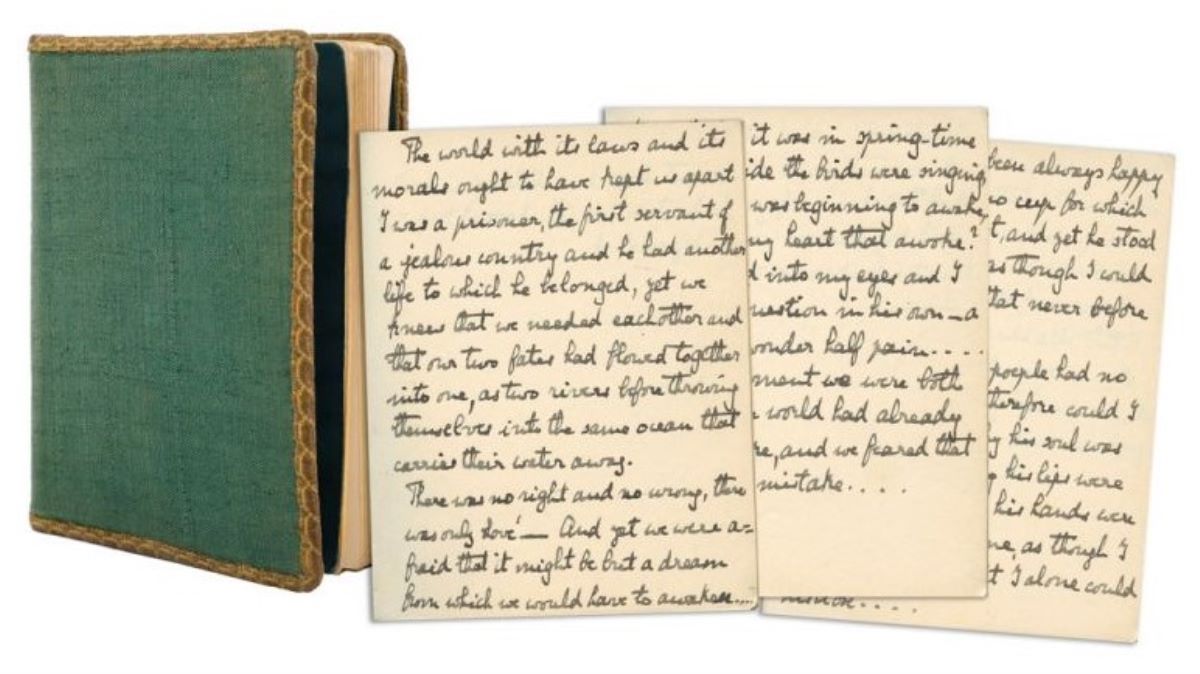 The world with its laws and its
morals ought to have kept us apart
I was a prisoner, the first servant of
a jealous country and he had another
life to which he belonged, yet we
knew that we needed eachother and
that our two fates had flowed together
into one, as two rivers before throwing
themselves into the same ocean that
carries their water away.
There was no right and no wrong, there
was only love — And yet we were a=
fraid that it might be but a dream
from which we would have to awaken....
it was in spring-time
the birds were singing
was beginning to awake,
my heart that awoke?
into my eyes and I
question in his own — a
wonder half pain....
we were both
world had already
and we feared that
mistake....
been always happy
no cup for which
and yet he stood
as though I would
that never before
people had no
therefore could I
his soul was
his lips were
his hands were
as though I
I alone could